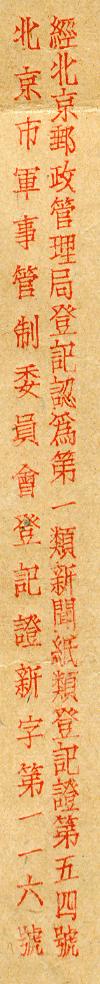 經北京郵政管理局登記認爲第一類新聞紙類登記證第五四號
北京市軍事管制委員會登記證新字第一一六號